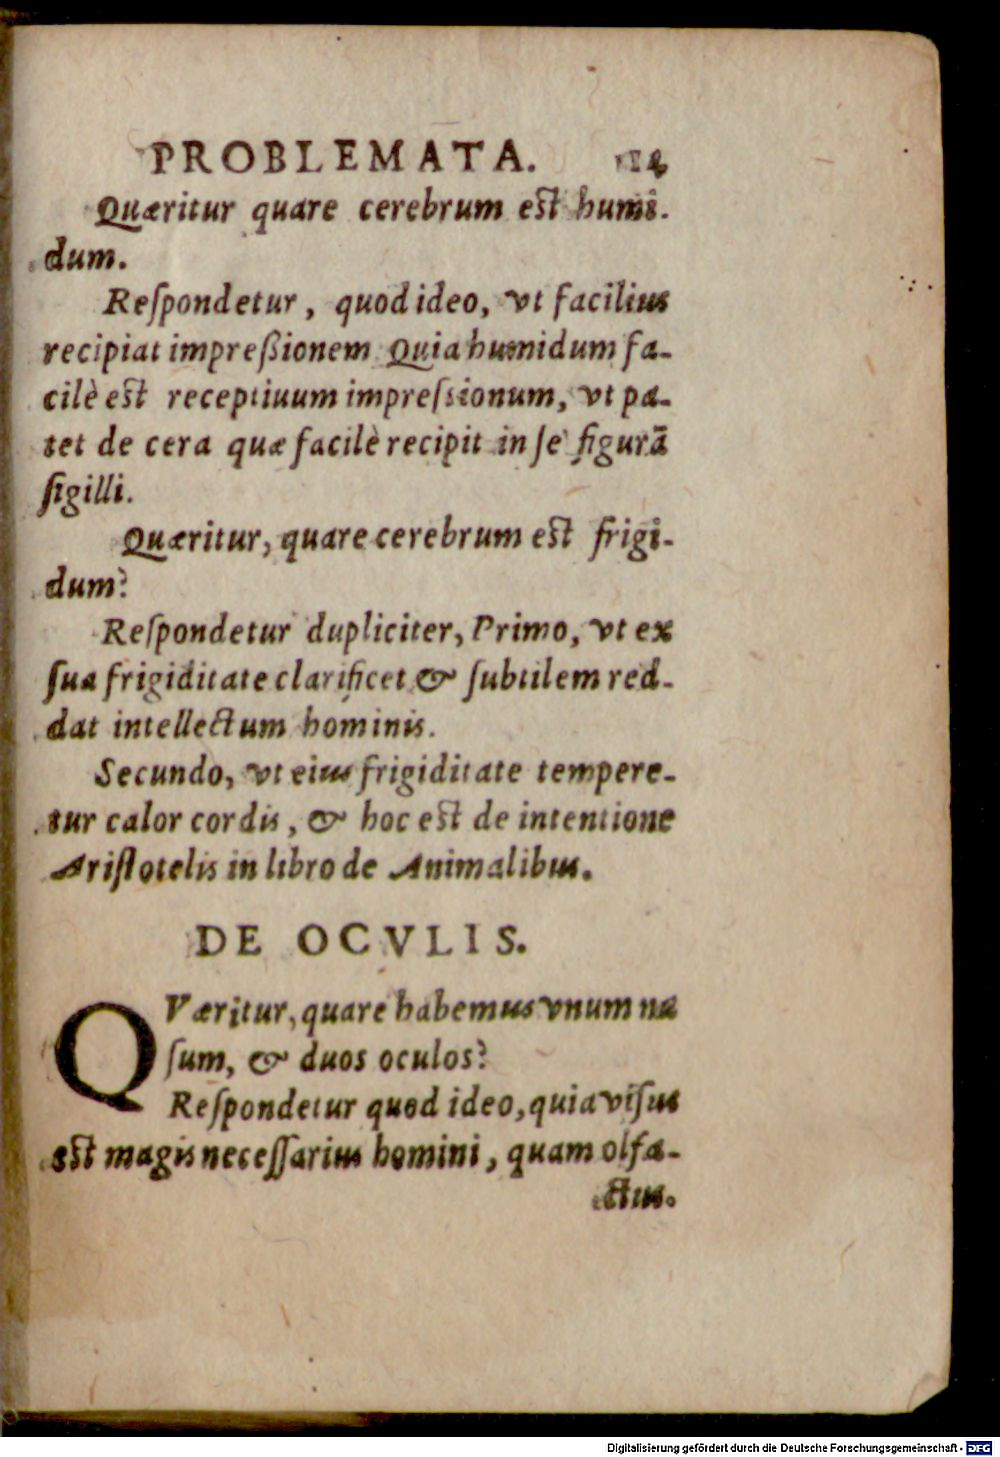 PROBLEMATA. 14
Quæritur quare cerebrum est humi-
dum.
Reſpondetur, quod ideo, vt facilius
recipiat impreßionem Quia humidum fa-
cilè est receptiuum impreſsionum, vt pa-
tet de cera quæ facilè recipit in ſe figurã
ſigilli.
Quæritur, quare cerebrum est frigi-
dum?
Reſpondetur dupliciter, Primo, vt ex
ſua frigiditate clarificet & ſubtilem red-
dat intellectum hominis.
Secundo, vt eius frigiditate tempere-
tur calor cordis, & hoc est de intentione
Ariſtotelis in libro de Animalibus.
DE OCVLIS.
QVæritur, quare habemus vnum na
ſum, & duos oculos?
Reſpondetur quod ideo, quia viſus
est magis neceſſarius homini, quam olfa-
ctus.
Digitalisierung gefördert durch die Deutsche Forschungsgemeinschaft - DFG